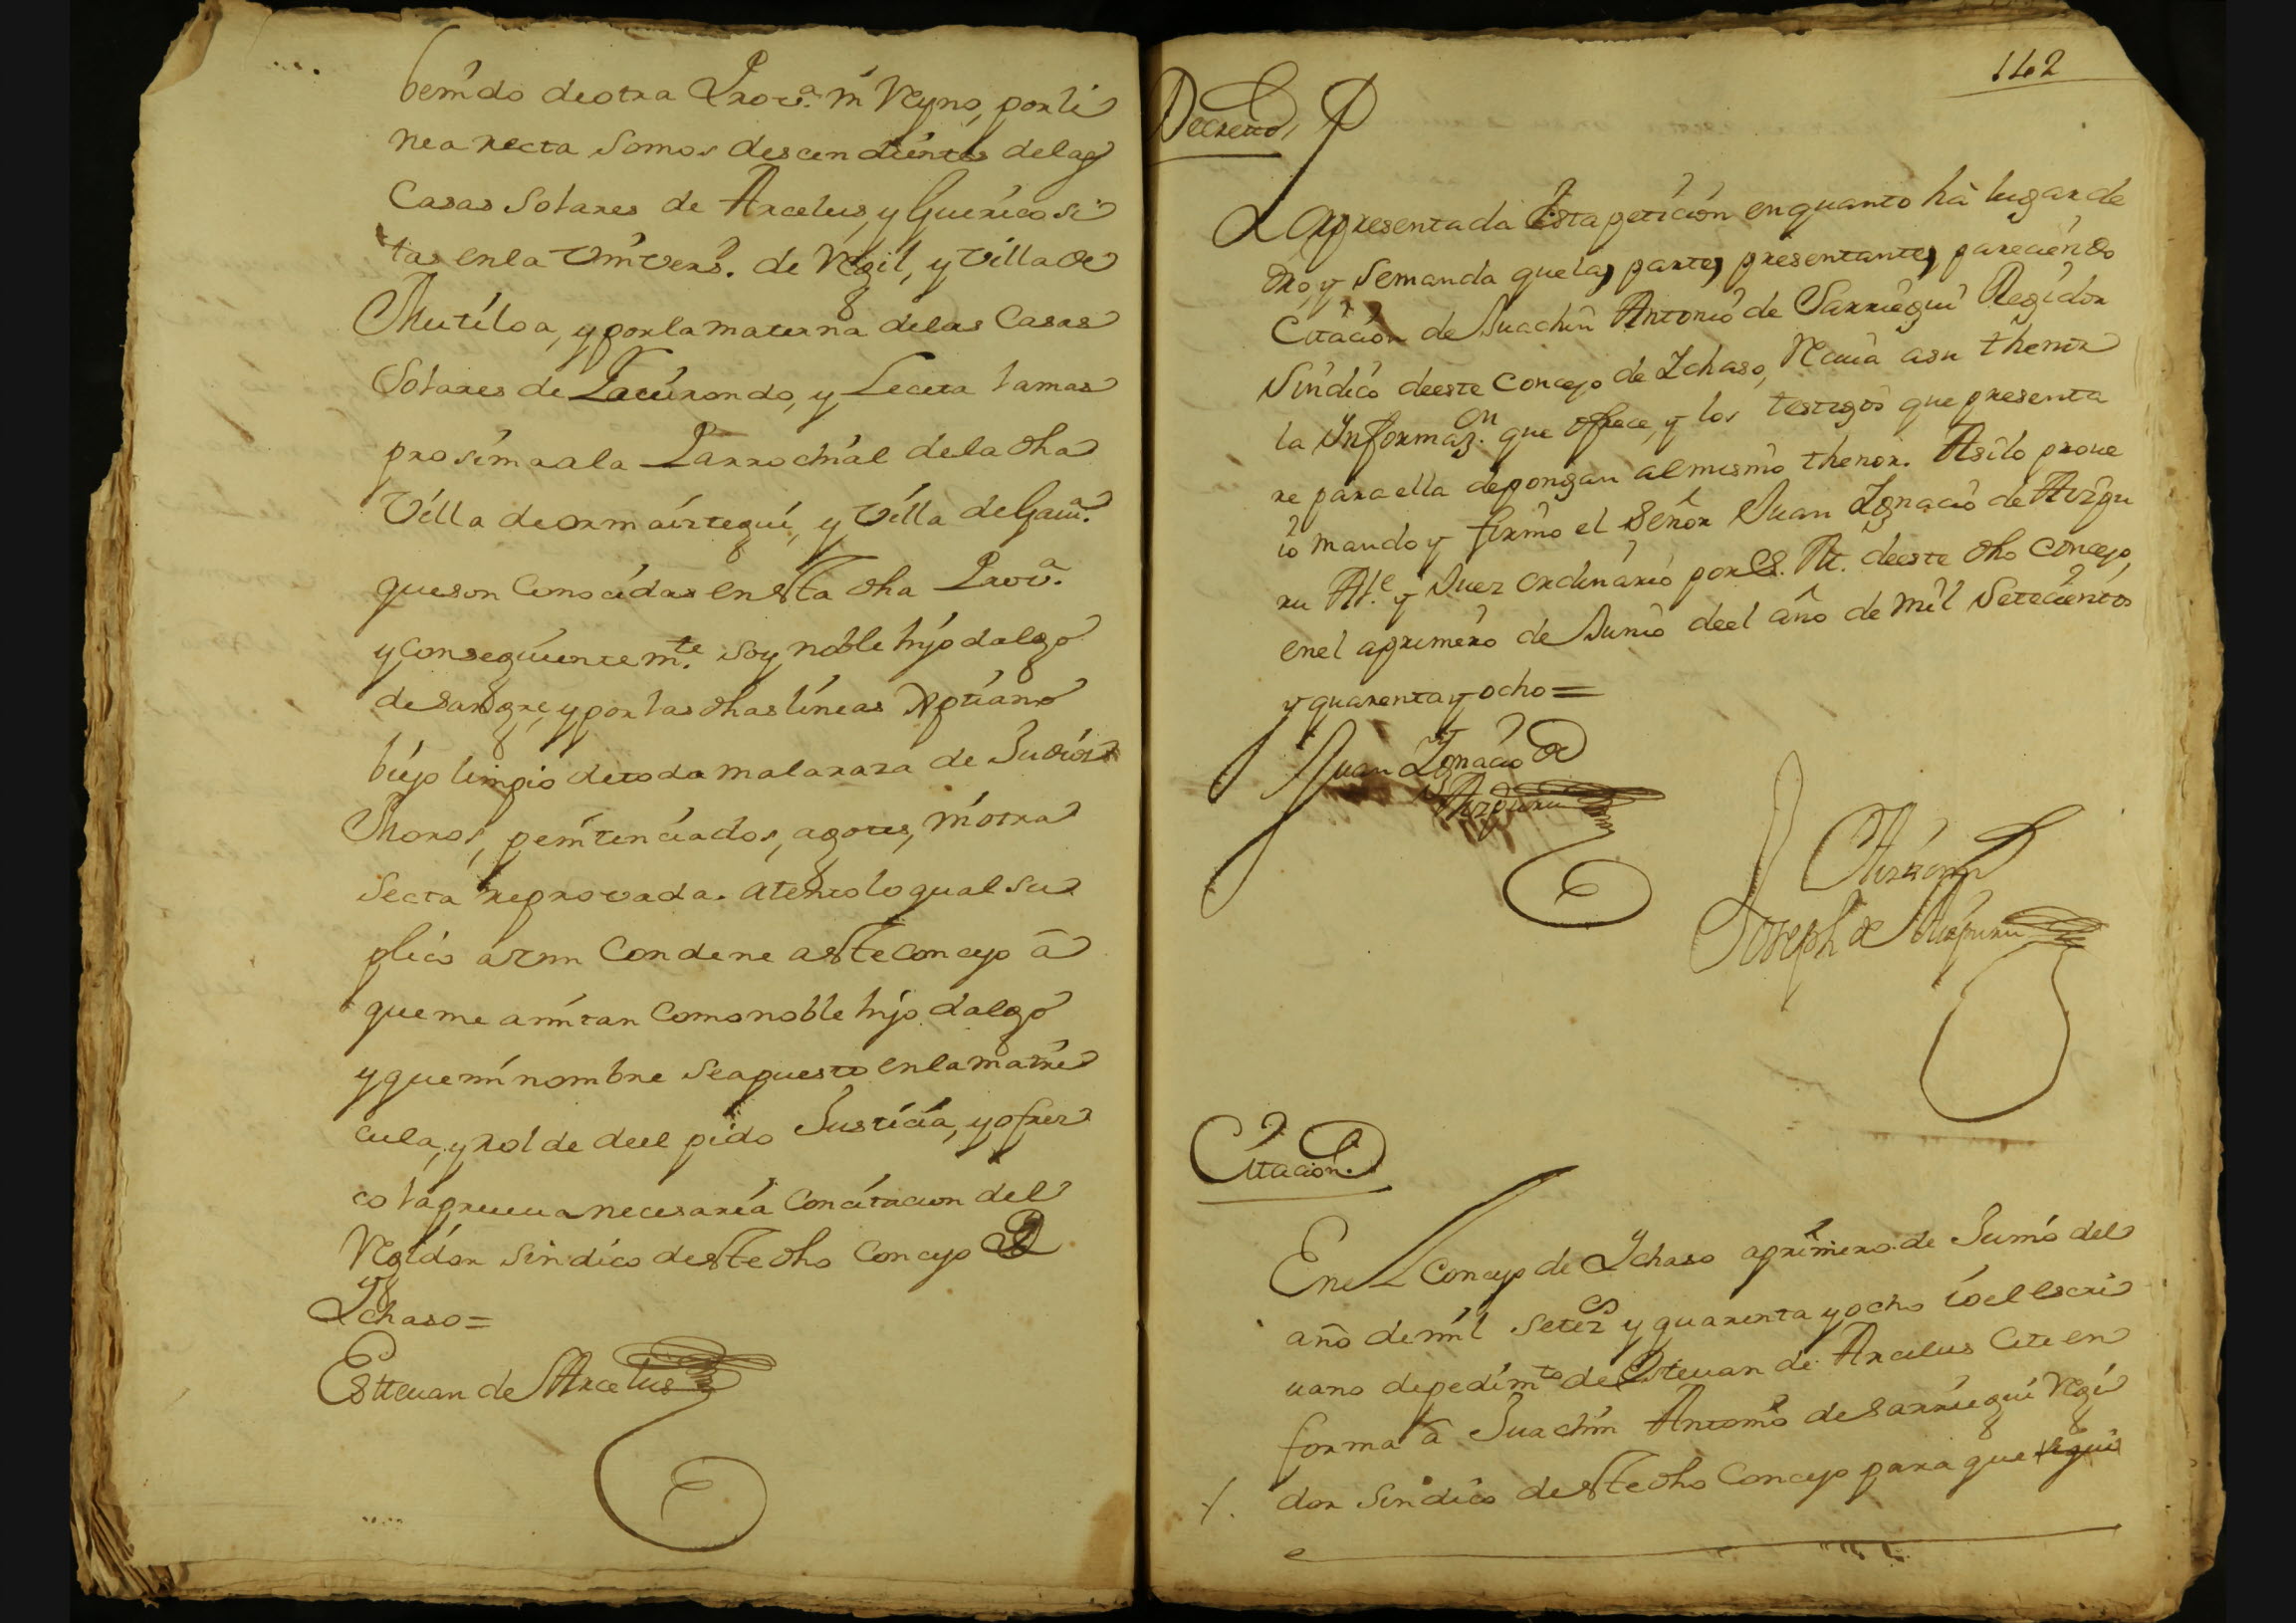 benido de otra Prov.ª ni Reyno, por li
nea recta somos descendientes de las
Casas Solares de Arcelus, y Guerico si
tas en la Univers.d de Regil, y Villa de
Mutiloa, y por la materna de las Casas
Solares de Lacunondo, y Leceta la mas
prosima a la Parrochial de la dha
Villa de Ormaiztegui, y Villa de Gavi.ª
que son Conocidas en esta dha Prov.ª
y Conseguientem.te soy noble hijo dalgo
de sangre, y por las dhas lineas Xptiano
biejo limpio de toda mala raza de Judios
Moros, penitenciados, agotes, ni otra
secta reprovada. atento lo qual su
plico a vm Condene a este Concejo â
que me amitan Como noble hijo dalgo
y que mi nombre sea puesto en la matri
cula, y rolde de el pido Justicia, y ofrez
co la prueua necesaria Con citacion del
Regidor Sindico de este dho Concejo de
Ychaso=
Estteuan de Arcelus
142
Decreto,
Por presentada Esta peticion en quanto hâ lugar de
dro, y Se manda que las partes presentantes, pareciendo
Citacion de Juachin Antonio de Sarriegui Regidor
Sindico de este Concejo de Ychaso, Reciua a su thenor
la Informaz.on que ofrece, y los testigos que presenta
re para ella depongan al mismo thenor. Asi lo prove
io mando y firmo el Señor Juan Ygnacio de Aizpu
ru Al.e y Juez ordinario por S. M. de este dho Concejo,
en el a primero de Junio de el año de mil Setecientos
y quarenta y ocho=
Juan Ygnacio de
Aizpuru
Ante mi
Joseph de Aizpuru
Citacion.
En el Concejo de Ychaso a primero de Junio del
año de mil setez.s y quarenta y ocho io el escri
uano de pedim.to de Esteuan de Arcelus Cite en
forma â Juachin Antonio de Sarriegui Regi
dor Sindico de este dho Concejo para que